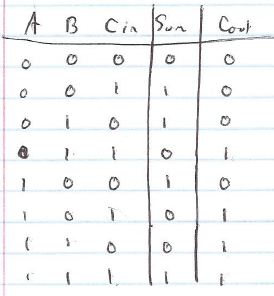 A B Cin Sum Cout
0 0 0 0 0
0 0 1 1 0
0 1 0 1 0
0 1 1 0 1
1 0 0 1 0
1 0 1 0 1
1 1 0 0 1
1 1 1 1 1